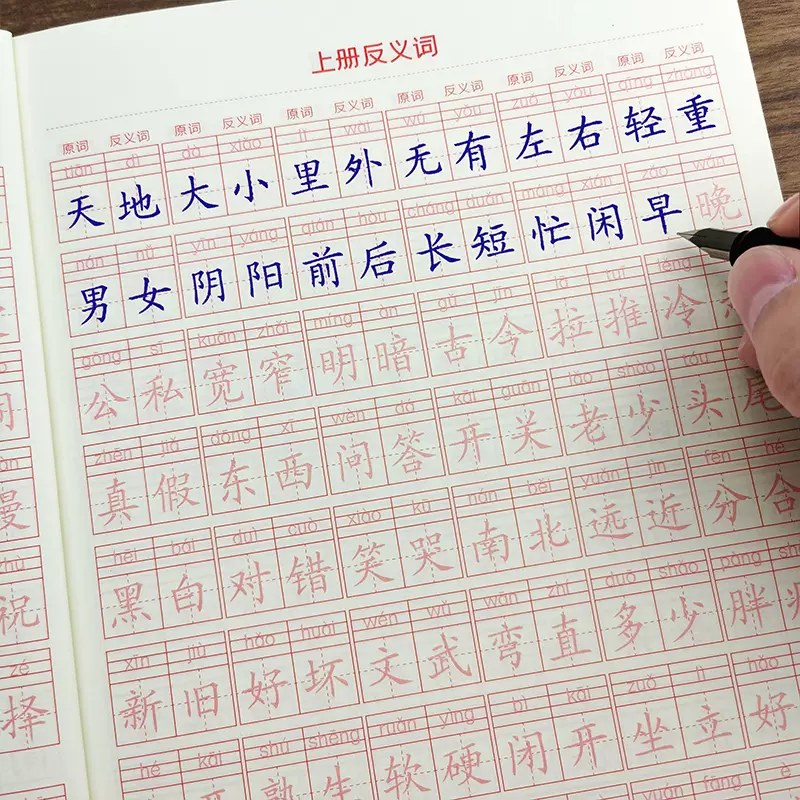 上册反义词
原词 反义词 原词 反义词 原词 反义词 原词 反义词 原词 反义词 原词 反义词
tiān dì dà xiǎo lǐ wài wú yǒu zuǒ yòu qīng zhòng
天地 大小 里外 无有 左右 轻重
nán nǚ yīn yáng qián hòu cháng duǎn máng xián zǎo wǎn
男女 阴阳 前后 长短 忙闲 早晚
gōng sī kuān zhǎi míng àn gǔ jīn lā tuī lěng
公私 宽窄 明暗 古今 拉推 冷
zhēn jiǎ dōng xī wèn dá kāi guān lǎo shào tóu
真假 东西 问答 开关 老少 头尾
hēi bái duì cuò xiào kū nán běi yuǎn jìn fēn hé
黑白 对错 笑哭 南北 远近 分合
xīn jiù hǎo huài wén wǔ wān zhí duō shǎo pàng
新旧 好坏 文武 弯直 多少 胖
hé kāi shú shēng ruǎn yìng bì kāi zuò lì hǎo
熟生 软硬 闭开 坐立 好
慢
zhù
祝
zé
择